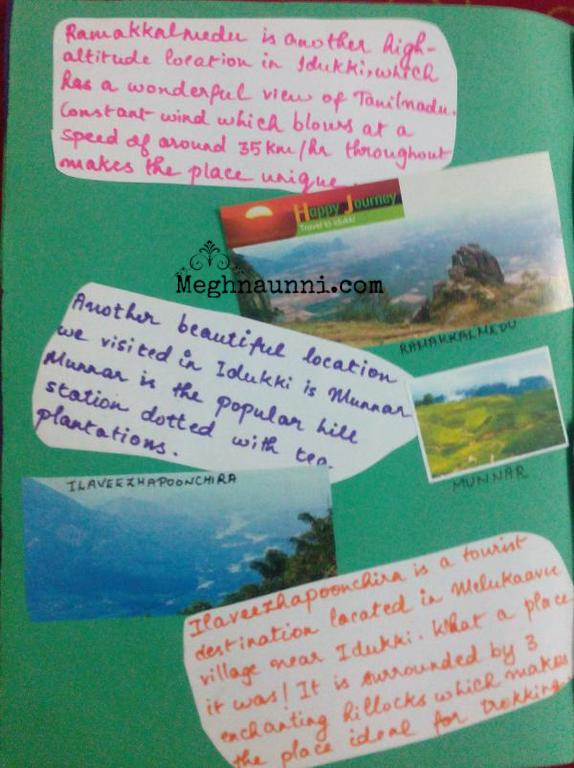 Ramakkalmedu is another high-
altitude location in Idukki, which
has a wonderful view of Tamilnadu.
Constant wind which blows at a
speed of around 35 km/hr throughout
makes the place unique.
Happy Journey
Travel to Idukki
Meghnaunni.com
RAMAKKALMEDU
Another beautiful location
we visited in Idukki is Munnar
Munnar is the popular hill
station dotted with tea
plantations.
MUNNAR
ILAVEEZHAPOONCHIRA
Ilaveezhapoonchira is a tourist
destination located in Melukaavu
village near Idukki. What a place
it was! It is surrounded by 3
enchanting hillocks which makes
the place ideal for trekking.